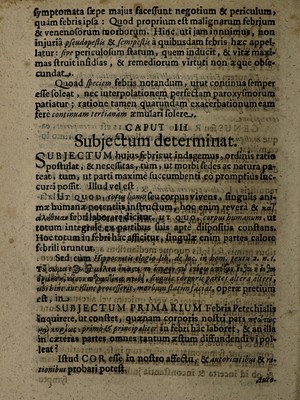 symptomata sæpe majus facessunt negotium & periculum,
quàm febris ipsa: Quod proprium est malignarum febrium
& venenosorum morborum. Hinc, uti jam innuimus, non
injuriâ à quibusdam febris hæc appel-
latur: sive periculosum statum, quem inducit, & vitæ maxi-
mas struit insidias, & remediorum virtuti non æquè obse-
cundat.
Quoad speciem febris notandum, utut continua semper
esse soleat, nec interpolationem perfectam paroxysmorum
patiatur; ratione tamen quarundam exacerbationum eam
fere continuam tertianam æmulari solere.
CAPUT III
Subjectum determinat.
SUBJECTUM hujus febris ut indagemus, ordinis ratio
postulat, & necessitas, tùm ut morbi sedes ac natura pa-
teat, tum, ut parti maximè succumbenti eò promptius suc-
curri possit. Illud vel est
UT QUOD, corpus homin seu corpus vivens, singulis ani-
mæ humanæ potentiis instructum, hoc enim reverà &
febri laborare dicitur. UT QUO, corpus humanum, ut
totum integrale ex partibus suis aptè dispositis constans
Hoc totum in febri hâc afficitur, singulæ enim partes calore
febrili uruntur.
Sed cum Hippocratis elogio sit, de hom.
operæ pretium
est, in
SUBJECTUM PRIMARIUM Febris Petechialis
inquirere, ut constet, quænam corporis nostri pars
primò & principaliter in febri hâc laboret, & an illa
in cæteras partes omnes tantum æstum diffundendi vi pol-
leat?
Istud COR esse in nostro affectu, & autoritatibus & ra-
tionibus probari potest.
Auto-